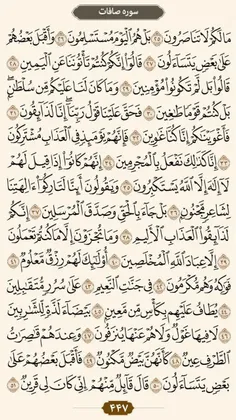 سوره صافات
مَالَكُمْ لَا تَنَاصَرُونَ ﴿٢٥﴾ بَلْ هُمُ الْيَوْمَ مُسْتَسْلِمُونَ ﴿٢٦﴾ وَأَقْبَلَ بَعْضُهُمْ
عَلَىٰ بَعْضٍ يَتَسَاءَلُونَ ﴿٢٧﴾ قَالُوا إِنَّكُمْ كُنْتُمْ تَأْتُونَنَا عَنِ الْيَمِينِ ﴿٢٨﴾
قَالُوا بَلْ لَمْ تَكُونُوا مُؤْمِنِينَ ﴿٢٩﴾ وَمَا كَانَ لَنَا عَلَيْكُمْ مِنْ سُلْطَانٍ
بَلْ كُنْتُمْ قَوْمًا طَاغِينَ ﴿٣٠﴾ فَحَقَّ عَلَيْنَا قَوْلُ رَبِّنَا إِنَّا لَذَائِقُونَ ﴿٣١﴾
فَأَغْوَيْنَاكُمْ إِنَّا كُنَّا غَاوِينَ ﴿٣٢﴾ فَإِنَّهُمْ يَوْمَئِذٍ فِي الْعَذَابِ مُشْتَرِكُونَ
﴿٣٣﴾ إِنَّا كَذَٰلِكَ نَفْعَلُ بِالْمُجْرِمِينَ ﴿٣٤﴾ إِنَّهُمْ كَانُوا إِذَا قِيلَ لَهُمْ
لَا إِلَٰهَ إِلَّا اللَّهُ يَسْتَكْبِرُونَ ﴿٣٥﴾ وَيَقُولُونَ أَئِنَّا لَتَارِكُو آلِهَتِنَا
لِشَاعِرٍ مَجْنُونٍ ﴿٣٦﴾ بَلْ جَاءَ بِالْحَقِّ وَصَدَّقَ الْمُرْسَلِينَ ﴿٣٧﴾ إِنَّكُمْ
لَذَائِقُو الْعَذَابِ الْأَلِيمِ ﴿٣٨﴾ وَمَا تُجْزَوْنَ إِلَّا مَا كُنْتُمْ تَعْمَلُونَ
﴿٣٩﴾ إِلَّا عِبَادَ اللَّهِ الْمُخْلَصِينَ ﴿٤٠﴾ أُولَٰئِكَ لَهُمْ رِزْقٌ مَعْلُومٌ ﴿٤١﴾
فَوَاكِهُ وَهُمْ مُكْرَمُونَ ﴿٤٢﴾ فِي جَنَّاتِ النَّعِيمِ ﴿٤٣﴾ عَلَىٰ سُرُرٍ مُتَقَابِلِينَ
﴿٤٤﴾ يُطَافُ عَلَيْهِمْ بِكَأْسٍ مِنْ مَعِينٍ ﴿٤٥﴾ بَيْضَاءَ لَذَّةٍ لِلشَّارِبِينَ
﴿٤٦﴾ لَا فِيهَا غَوْلٌ وَلَا هُمْ عَنْهَا يُنْزَفُونَ ﴿٤٧﴾ وَعِنْدَهُمْ قَاصِرَاتُ
الطَّرْفِ عِينٌ ﴿٤٨﴾ كَأَنَّهُنَّ بَيْضٌ مَكْنُونٌ ﴿٤٩﴾ فَأَقْبَلَ بَعْضُهُمْ عَلَىٰ
بَعْضٍ يَتَسَاءَلُونَ ﴿٥٠﴾ قَالَ قَائِلٌ مِنْهُمْ إِنِّي كَانَ لِي قَرِينٌ ﴿٥١﴾
۴۴۷